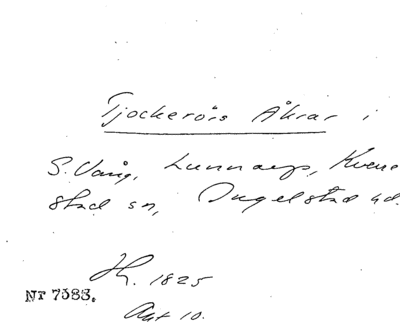 Tjockeröis Åkrar i
S. Vång, Lunnarp, Kverre
stad sn, Ingelstad hd.
H. 1825
Akt 10.
NT 7383.